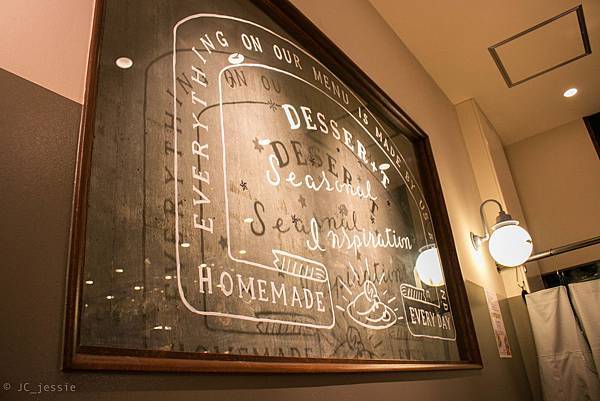 EVERYTHING ON OUR MENU IS MADE BY US
DESSERT
Seasonal
Inspiration
HOMEMADE
EVERY DAY
© JC_jessie